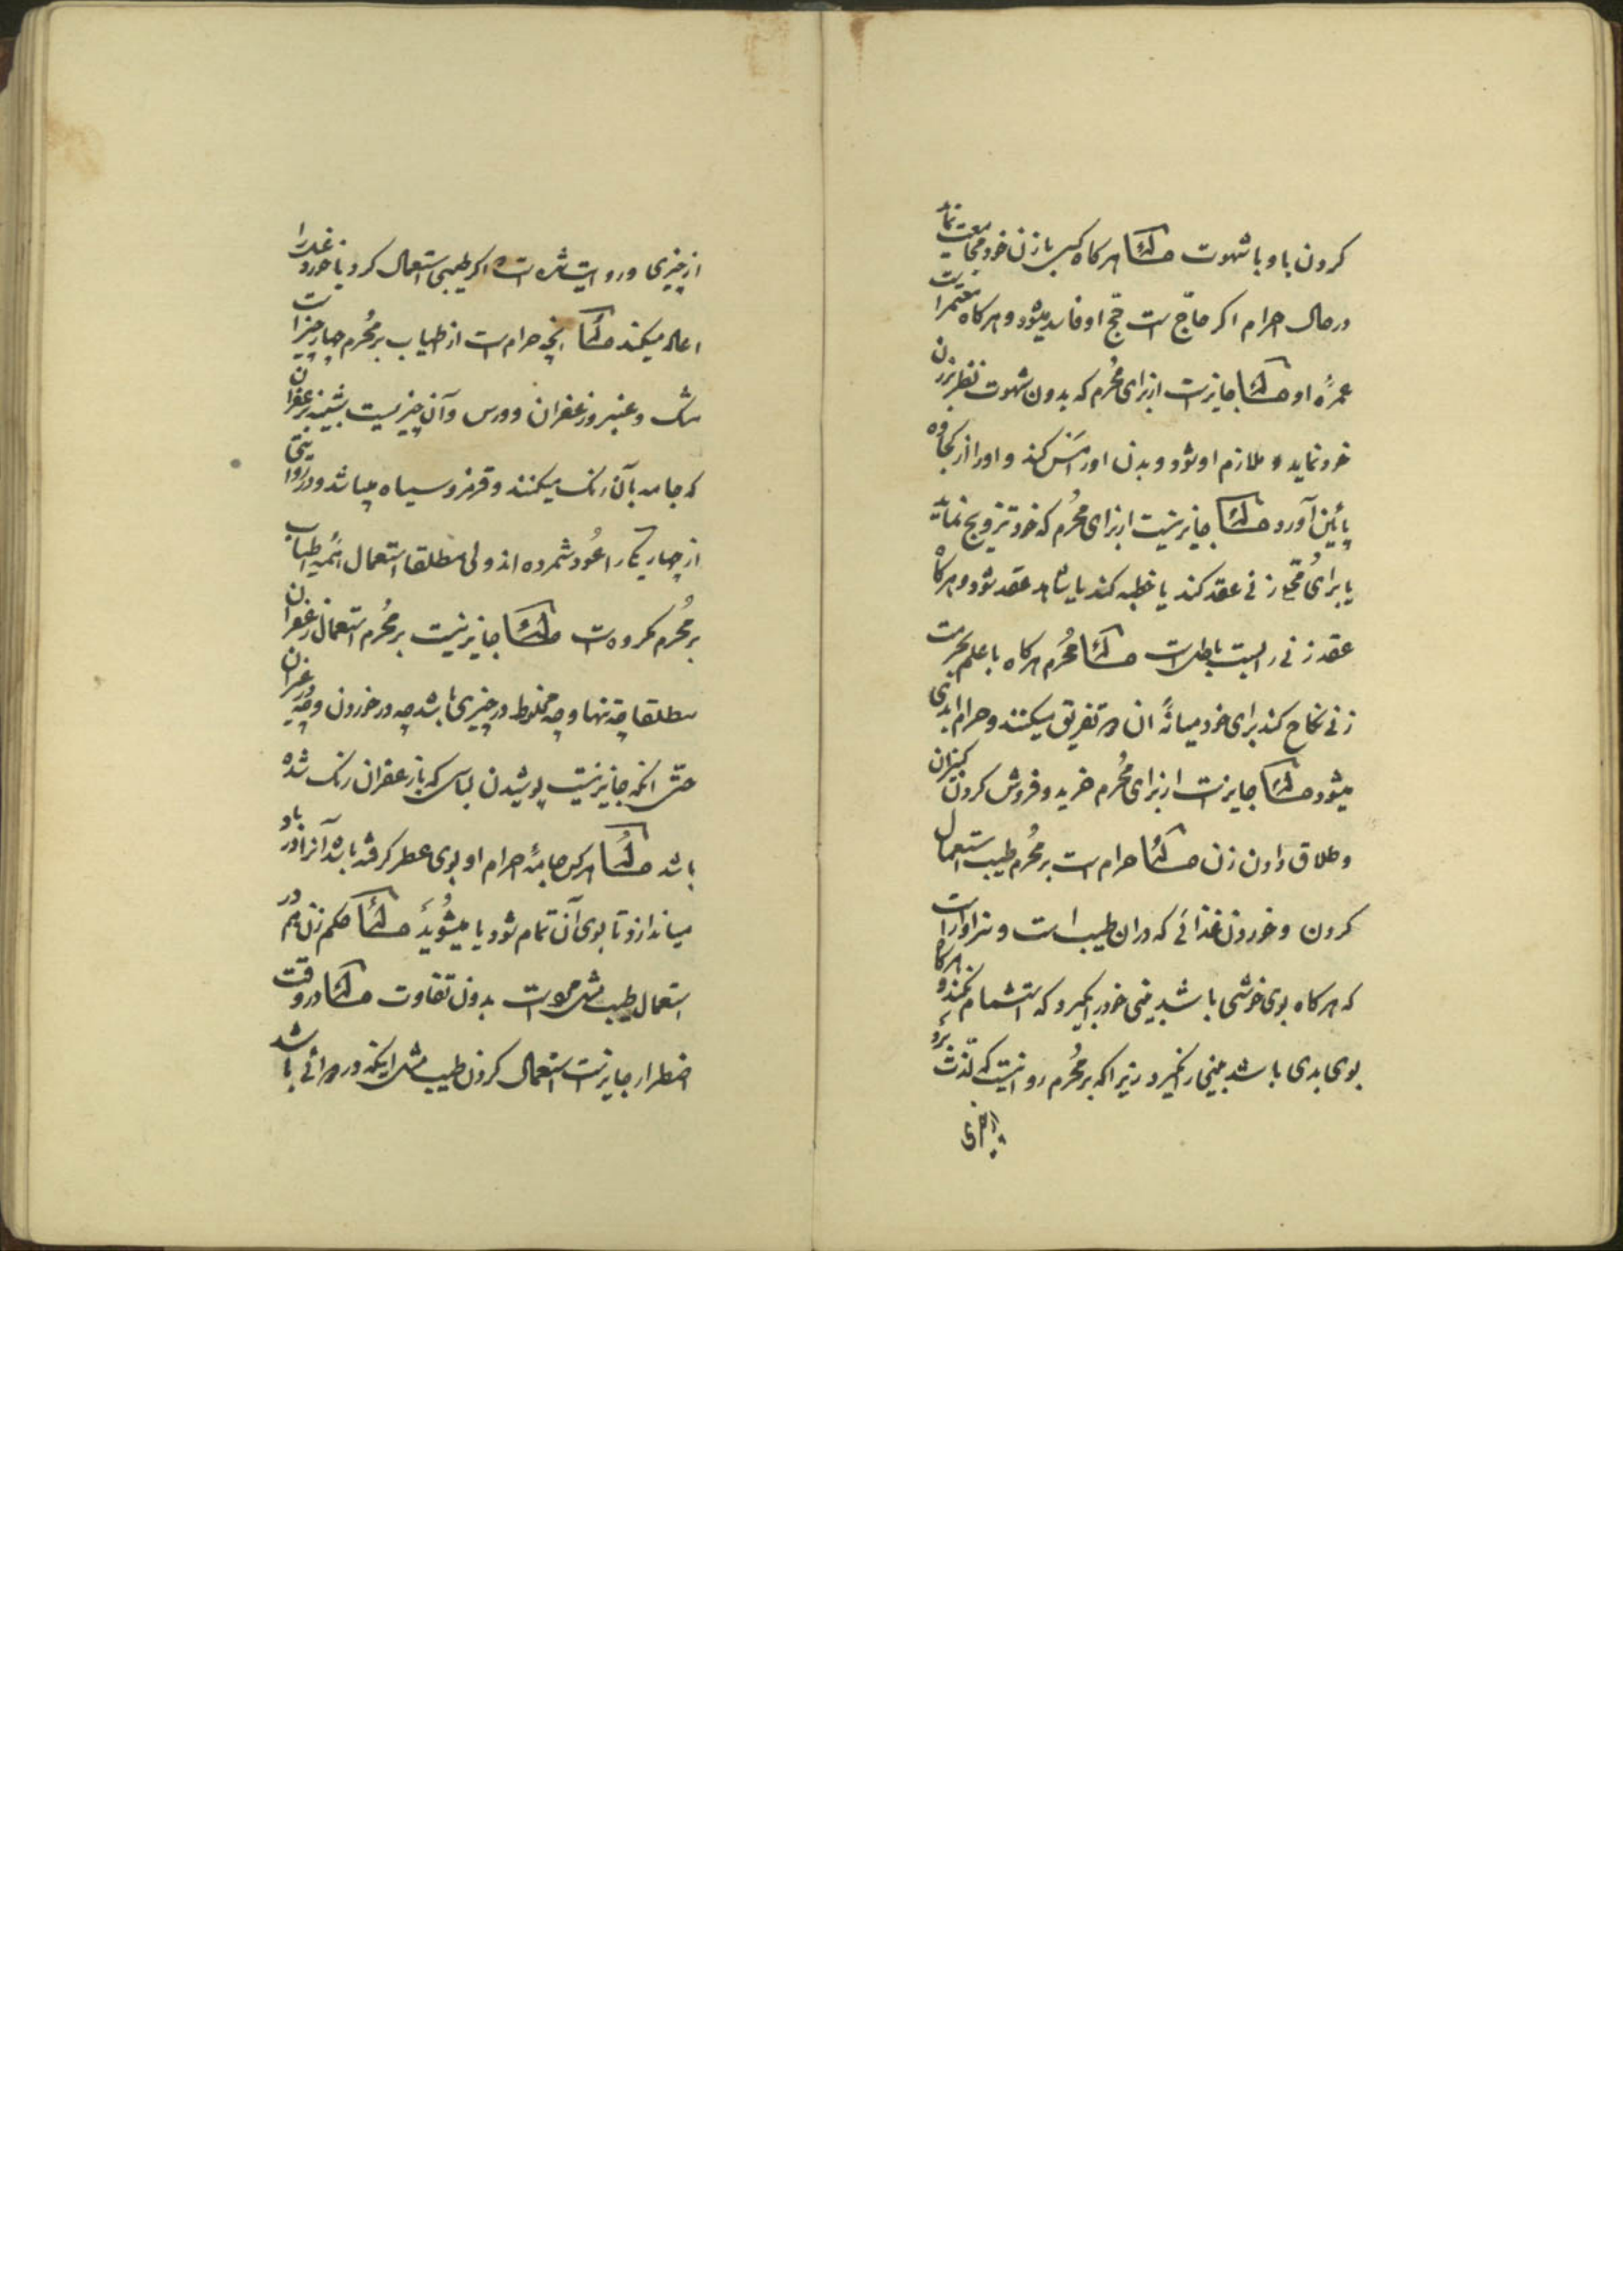 کردن با و با شهوت مسئله هرکاه کسی با زن خود مجامعت نماید
در حال احرام اکر حاج است حج او فاسد میشود و هرکاه معتمر است
عمرهٔ او مسئله جایز است از برای مُحرم که بدون شهوت نظر بزن
خود نماید و ملازم او شود و بدن او را مَس کند و او را از کجاوه
پائین آورد مسئله جایز نیست از برای مُحرم که خود تزویج نماید
یا برای زنی عقد کند یا خطبه کند یا شاهد عقد شود و هرکاه
عقد زنی را بست باطل است مسئله مُحرم هرکاه با علم بحرمت
زنی نکاح کند برای خود میانهٔ ان دو تفریق میکنند و حرام ابدی
میشود مسئله جایز است از برای مُحرم خرید و فروش کردن کنیزان
و طلاق دادن زن مسئله حرام است بر مُحرم طیب استعمال
کردن و خوردن غذائی که دران طیب است و سزاوار است
که هرکاه بوی خوشی باشد بینی خود را بکیرد که استشمام نکند و هرکاه
بوی بدی باشد بینی را نکیرد زیرا که بر مُحرم روا نیست که تلذذ برد
از چیزی و روایت شده است اکر طیبی استعمال کرد یا خورد غذا را
اعاده میکند مسئله انچه حرام است از طیاب بر مُحرم چهار چیز است
مشک و عنبر و زعفران و ورس و آن چیزیست شبیه بزعفران
که جامه بآن رنک میکنند و قرمز و سیاه میباشد و در روایتی
از چهار یکی را عُود شمرده اند ولی مطلقا استعمال اطیاب
بر مُحرم مکروه است مسئله جایز نیست بر مُحرم استعمال زعفران
مطلقا چه تنها و چه مخلوط در چیزی باشد چه در خوردن و چه در غیر ان
حتّی انکه جایز نیست پوشیدن لباسی که با زعفران رنک شده
باشد مسئله هرکس جامهٔ احرام او بوی عطر کرفته باشد آنرا در باد
میاندازد تا بوی آن تمام شود یا میشُوید مسئله حکم زن هم در
استعمال طیب مثل مرد است بدون تفاوت مسئله در وقت
اضطرار جایز است استعمال کردن طیب مثل اینکه در دوائی باشد